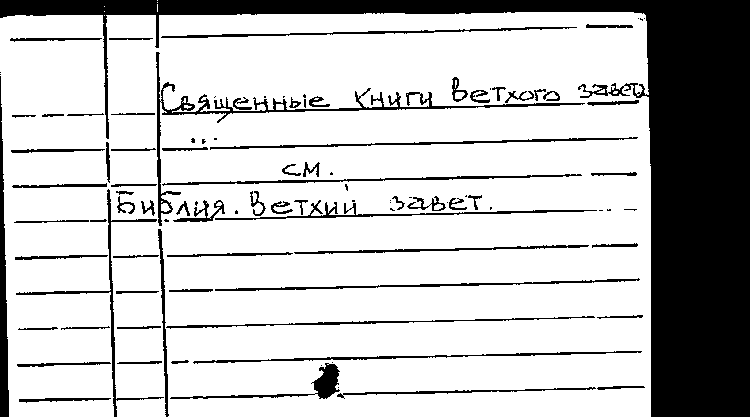 Священные книги ветхого завета
...
см.
Библия. Ветхий завет.